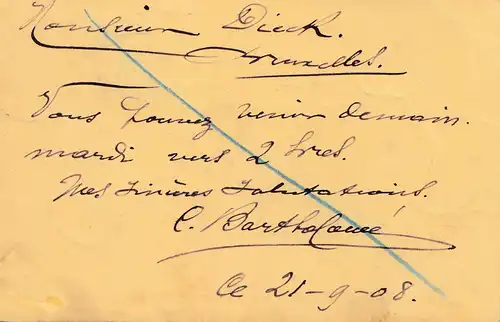 Monsieur Dieck.
Bruxelles.
Vous pouvez venir demain
mardi vers 2 hres.
Mes sincères salutations.
C. Bartholomé
Ce 21-9-08.